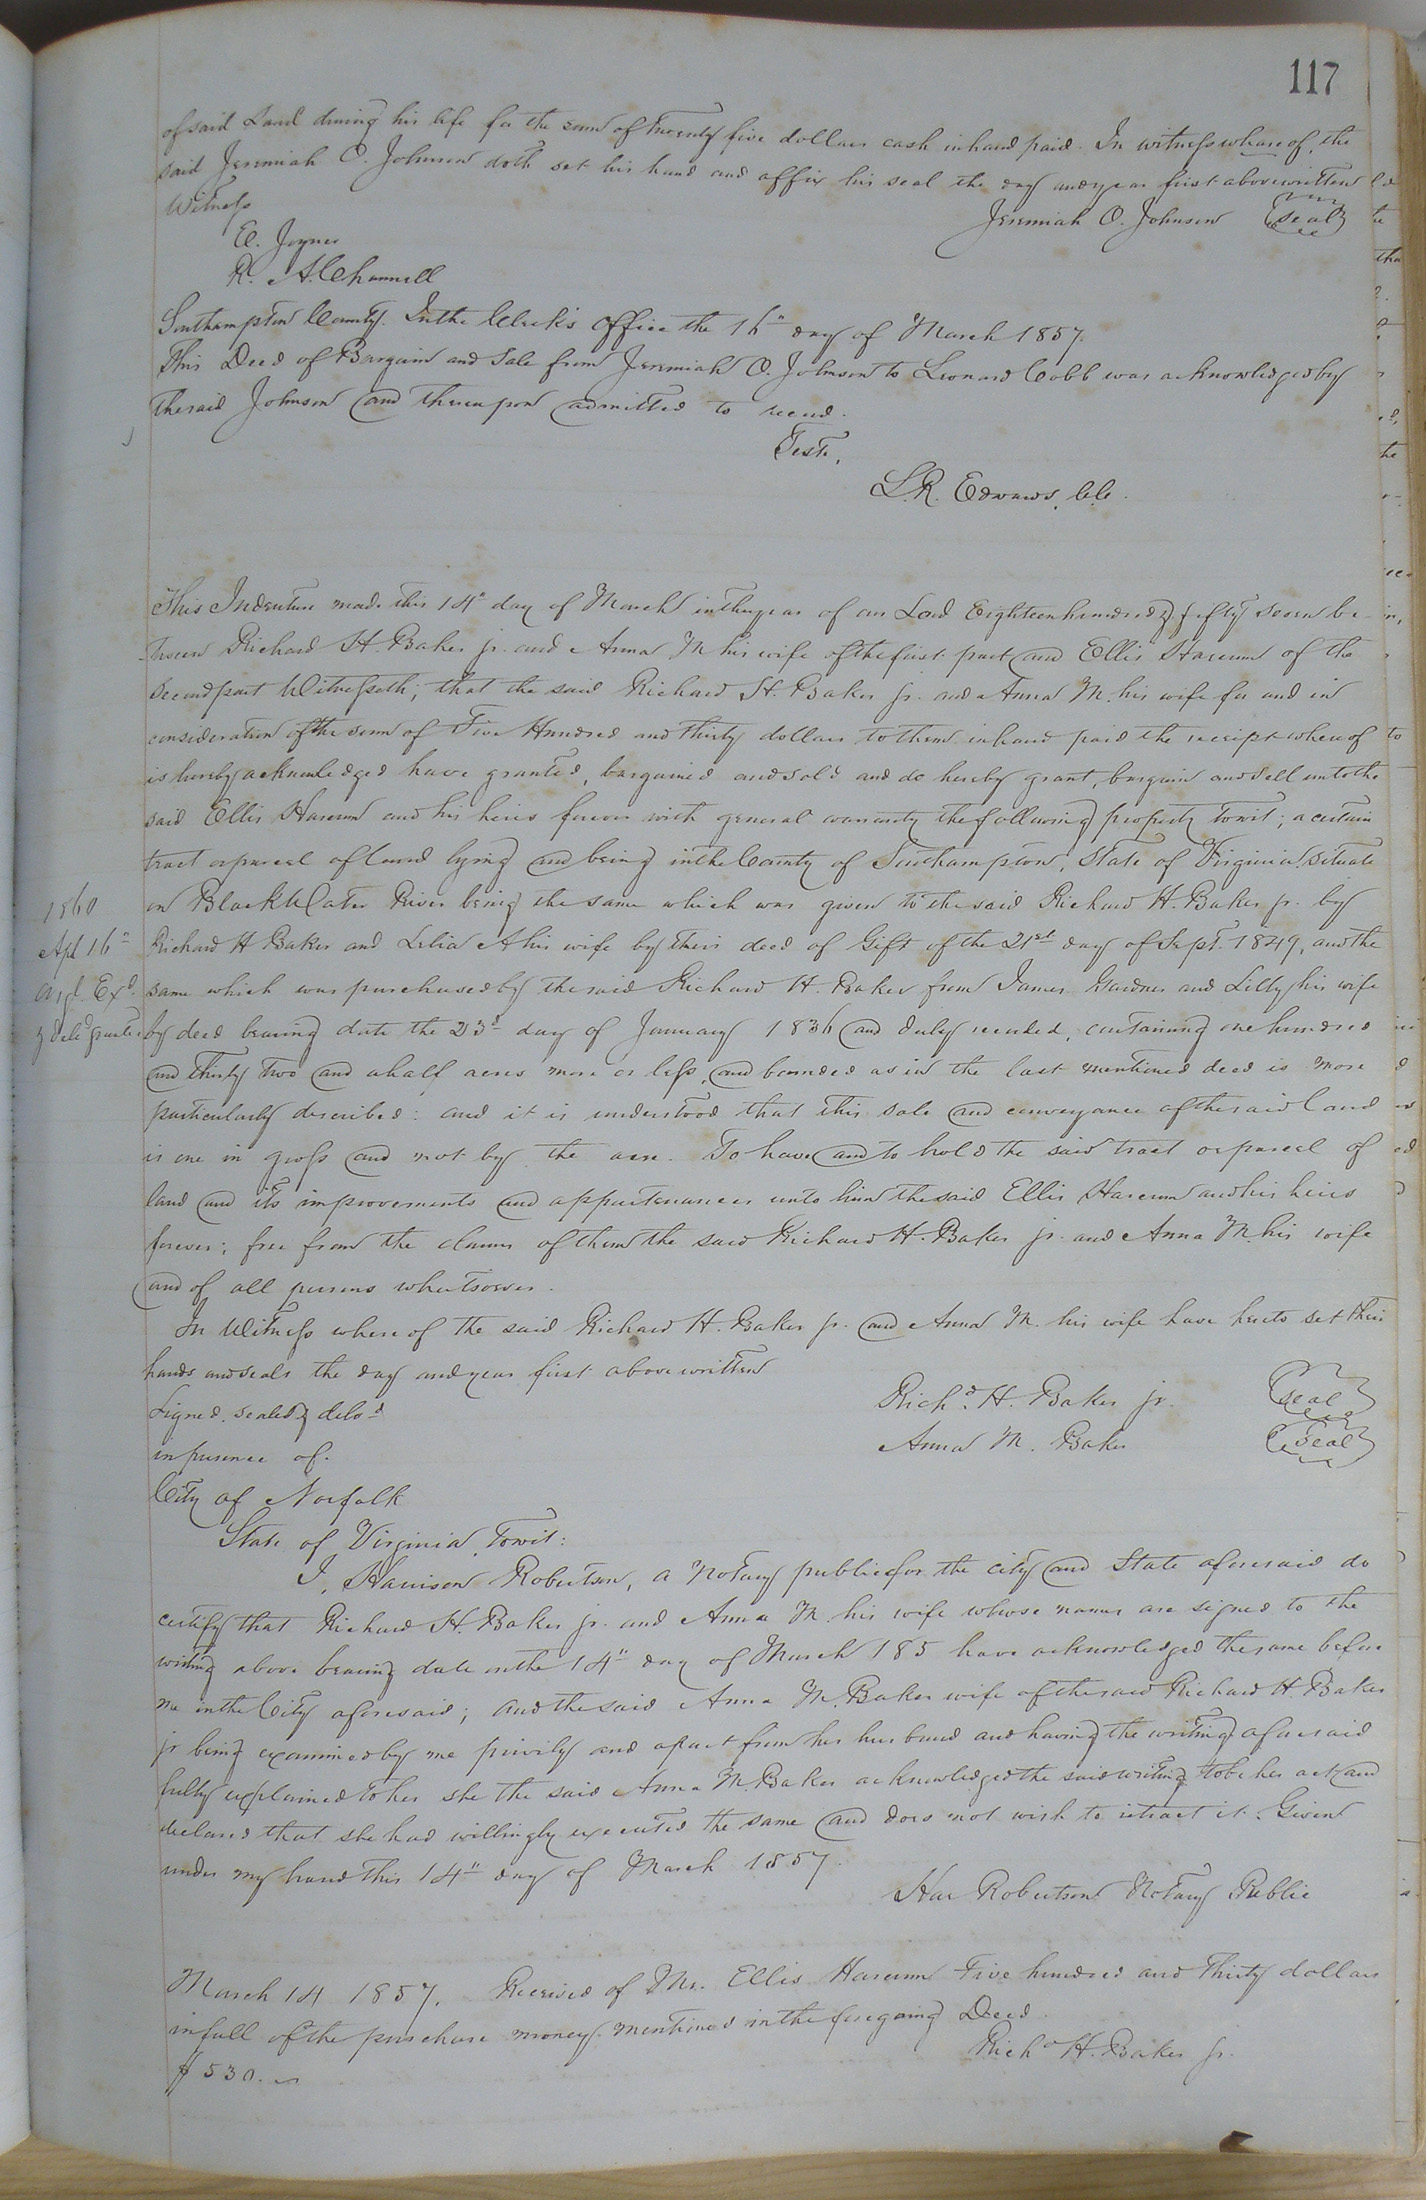 117
of said Land during his life for the sum of Twenty five dollars cash in hand paid. In witness whereof, the
said Jeremiah O. Johnson doth set his hand and affix his seal the day and year first above written
Witness
Jeremiah O. Johnson seal
E. Joyner
R. A. Channell
Southampton County. In the Clerk's Office the 16" day of March 1857.
This Deed of Bargain and Sale from Jeremiah O. Johnson to Leonard Cobb was acknowledged by
the said Johnson and thereupon admitted to record.
Teste,
L.R. Edwards, C.C.
This Indenture made this 14" day of March in the year of our Lord Eighteen hundred & fifty seven be-
tween Richard H. Baker jr. and Anna M his wife of the first part and Ellis Harcum of the
Second part Witnesseth; that the said Richard H. Baker jr. and Anna M. his wife for and in
consideration of the sum of Five Hundred and thirty dollars to them in hand paid the receipt whereof
is hereby acknowledged have granted, bargained and sold and do hereby grant, bargain and sell unto the
said Ellis Harcum and his heirs forever with general warranty the following property towit; a certain
tract or parcel of land lying and being in the County of Southampton, State of Virginia, situate
on Black Water River being the same which was given to the said Richard H. Baker jr. by
Richard H Baker and Lelia A his wife by their deed of Gift of the 21st day of Sept. 1849, and the
same which was purchased by the said Richard H. Baker from James Gardner and Lilly his wife
by deed bearing date the 23d day of January 1836 and duly recorded, containing one hundred
and thirty two and a half acres more or less, and bounded as in the last mentioned deed is more
particularly described: and it is understood that this sale and conveyance of the said land
is one in gross and not by the acre. To have and to hold the said tract or parcel of
land and its improvements and appurtenances unto him the said Ellis Harcum and his heirs
forever; free from the claims of them the said Richard H. Baker jr. and Anna M. his wife
and of all persons whatsoever.
In Witness whereof the said Richard H. Baker jr. and Anna M. his wife have hereto set their
hands and seals the day and year first above written
Signed, sealed & deld
in presence of.
Richd. H. Baker jr. seal
Anna M. Baker seal
1860
Apl 16"
Orgl. Exd.
& deld grantee
City of Norfolk
State of Virginia, Towit:
I, Harrison Robertson, a Notary public for the city and State aforesaid do
certify that Richard H. Baker jr. and Anna M. his wife whose names are signed to the
writing above bearing date on the 14" day of March 185 have acknowledged the same before
me in the City aforesaid; and the said Anna M. Baker wife of the said Richard H. Baker
jr being examined by me privily and apart from her husband and having the writing aforesaid
fully explained to her she the said Anna M. Baker acknowledged the said writing to be her act and
declared that she had willingly executed the same and does not wish to retract it. Given
under my hand this 14" day of March 1857.
Har Robertson Notary Public
March 14 1857. Received of Mr. Ellis Harcum Five hundred and Thirty dollars
in full of the purchase money mentioned in the foregoing Deed.
Richd H. Baker jr.
$530.